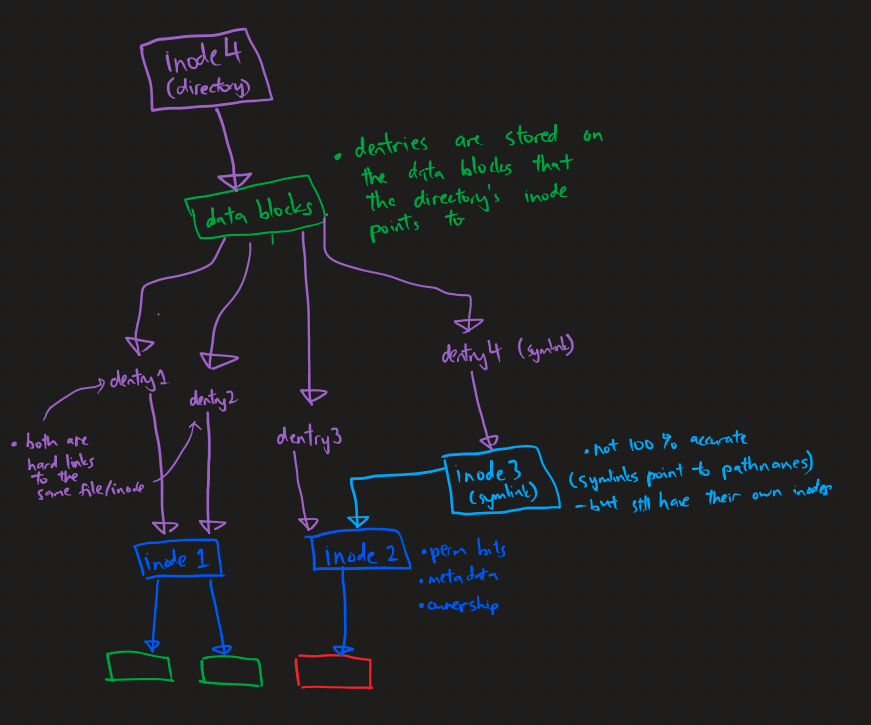 inode 4
(directory)
• dentries are stored on
the data blocks that
the directory's inode
points to
data blocks
dentry4 (symlink)
dentry1
dentry2
dentry3
• both are
hard links
to the
same file/inode
• not 100% accurate
(symlinks point to pathnames)
- but still have their own inodes
inode 3
(symlink)
inode 1
inode 2
• perm bits
• metadata
• ownership